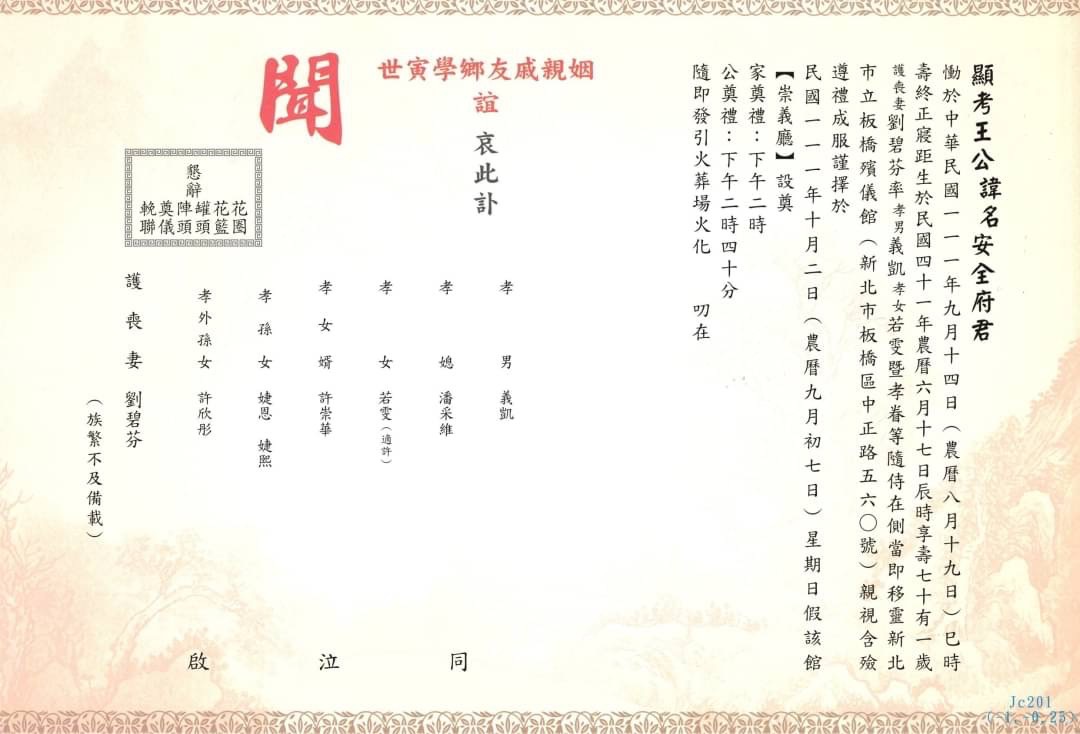 顯考王公諱名安全府君
慟於中華民國一一一年九月十四日（農曆八月十九日）巳時
壽終正寢距生於民國四十一年農曆六月十七日辰時享壽七十有一歲
護喪妻劉碧芬率孝男義凱孝女若雯暨孝眷等隨侍在側當即移靈新北
市立板橋殯儀館（新北市板橋區中正路五六〇號）親視含殮
遵禮成服謹擇於
民國一一一年十月二日（農曆九月初七日）星期日假該館
【崇義廳】設奠
家奠禮：下午二時
公奠禮：下午二時四十分
隨即發引火葬場火化 叨在
姻親戚友鄉學寅世
誼 哀此訃
聞
懇辭
花圈
花籃
罐頭
陣頭
奠儀
輓聯
孝男 義凱
孝媳 潘采維
孝女 若雯（適許）
孝女婿 許崇華
孝孫女 婕恩 婕熙
孝外孫女 許欣彤
護喪妻 劉碧芬
（族繁不及備載）
同 泣 啟
Jc201
(-1,-0.25)